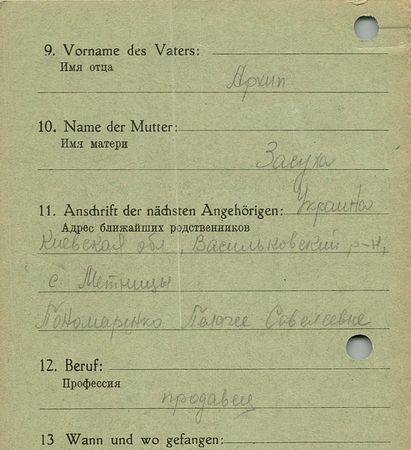 9. Vorname des Vaters:
Имя отца
Архип
10. Name der Mutter:
Имя матери
Засуха
11. Anschrift der nächsten Angehörigen: Украина
Адрес ближайших родственников
Киевская обл, Васильковский р-н,
с Метницы
Пономаренко Пелогее Совелеевне
12. Beruf:
Профессия
продавец
13 Wann und wo gefangen: